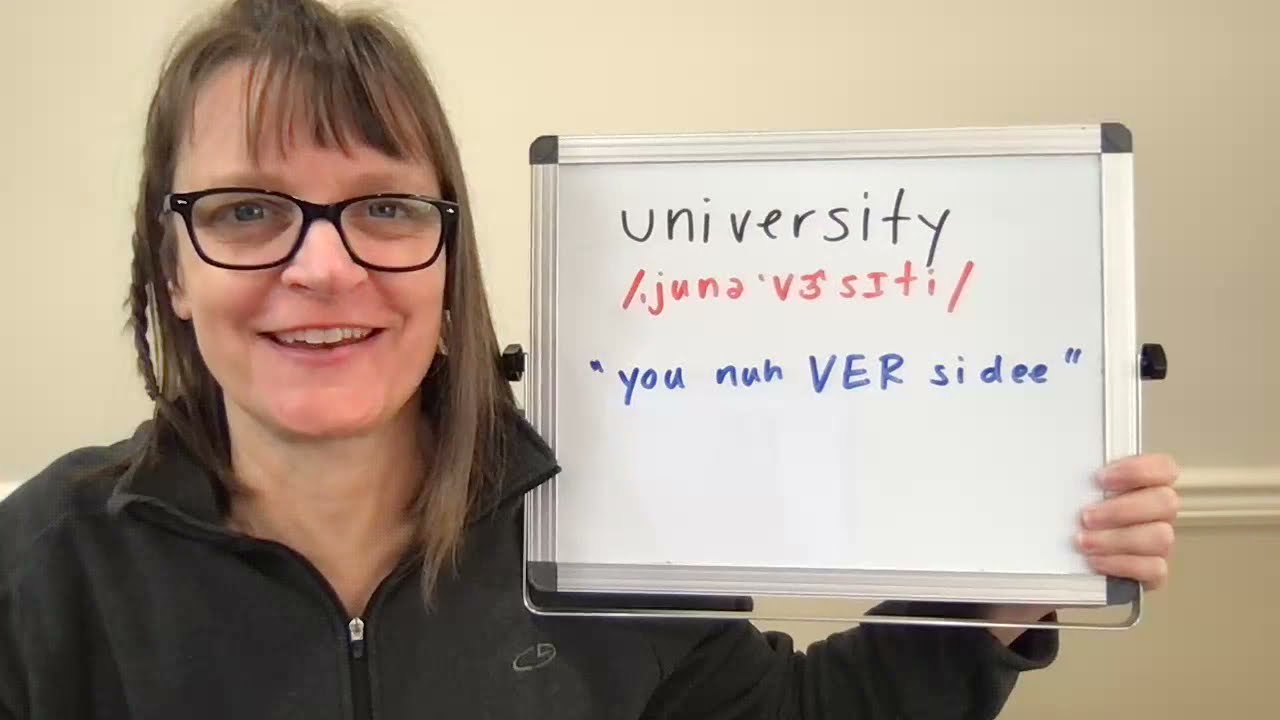 university
/ˌjunəˈvɝsɪti/
"you nuh VER sidee"